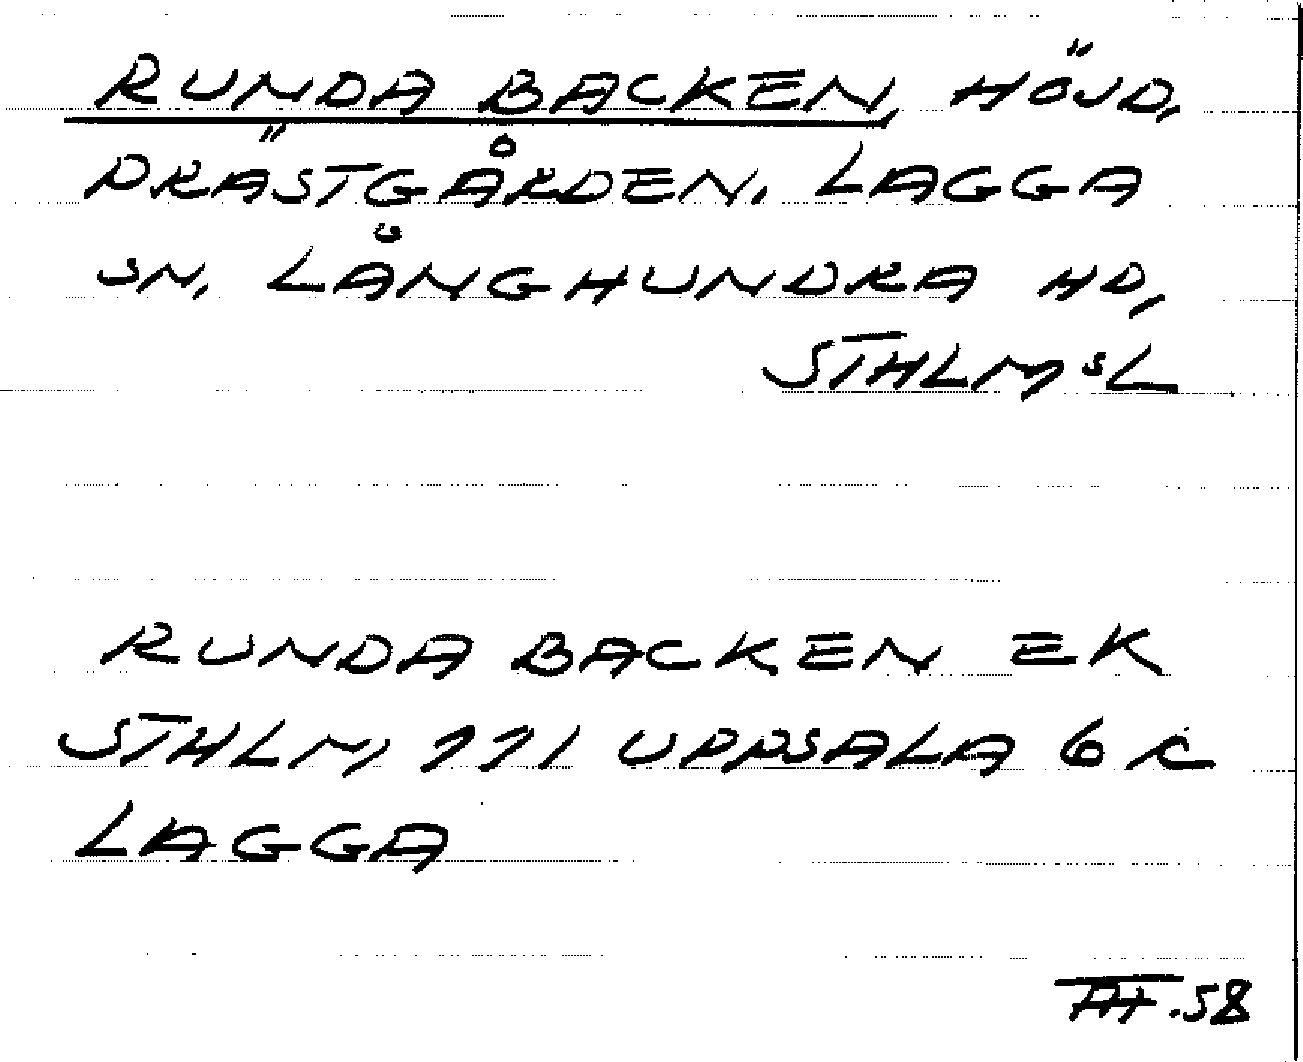 RUNDA BACKEN, HÖJD,
PRÄSTGÅRDEN, LAGGA
SN, LÅNGHUNDRA HD,
STHLMSL
RUNDA BACKEN EK
STHLM, 111 UPPSALA 6 C
LAGGA